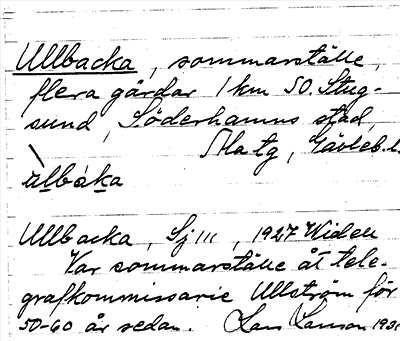 Ullbacka, sommarställe,
flera gårdar 1 km SO. Stug-
sund, Söderhamns stad,
Gävleb. l.
ulbaka
Ullbacka, Sj III, 1927 Widell
Var sommarställe åt tele-
grafkommissarie Ullström för
50-60 år sedan. Lars Larsson 193